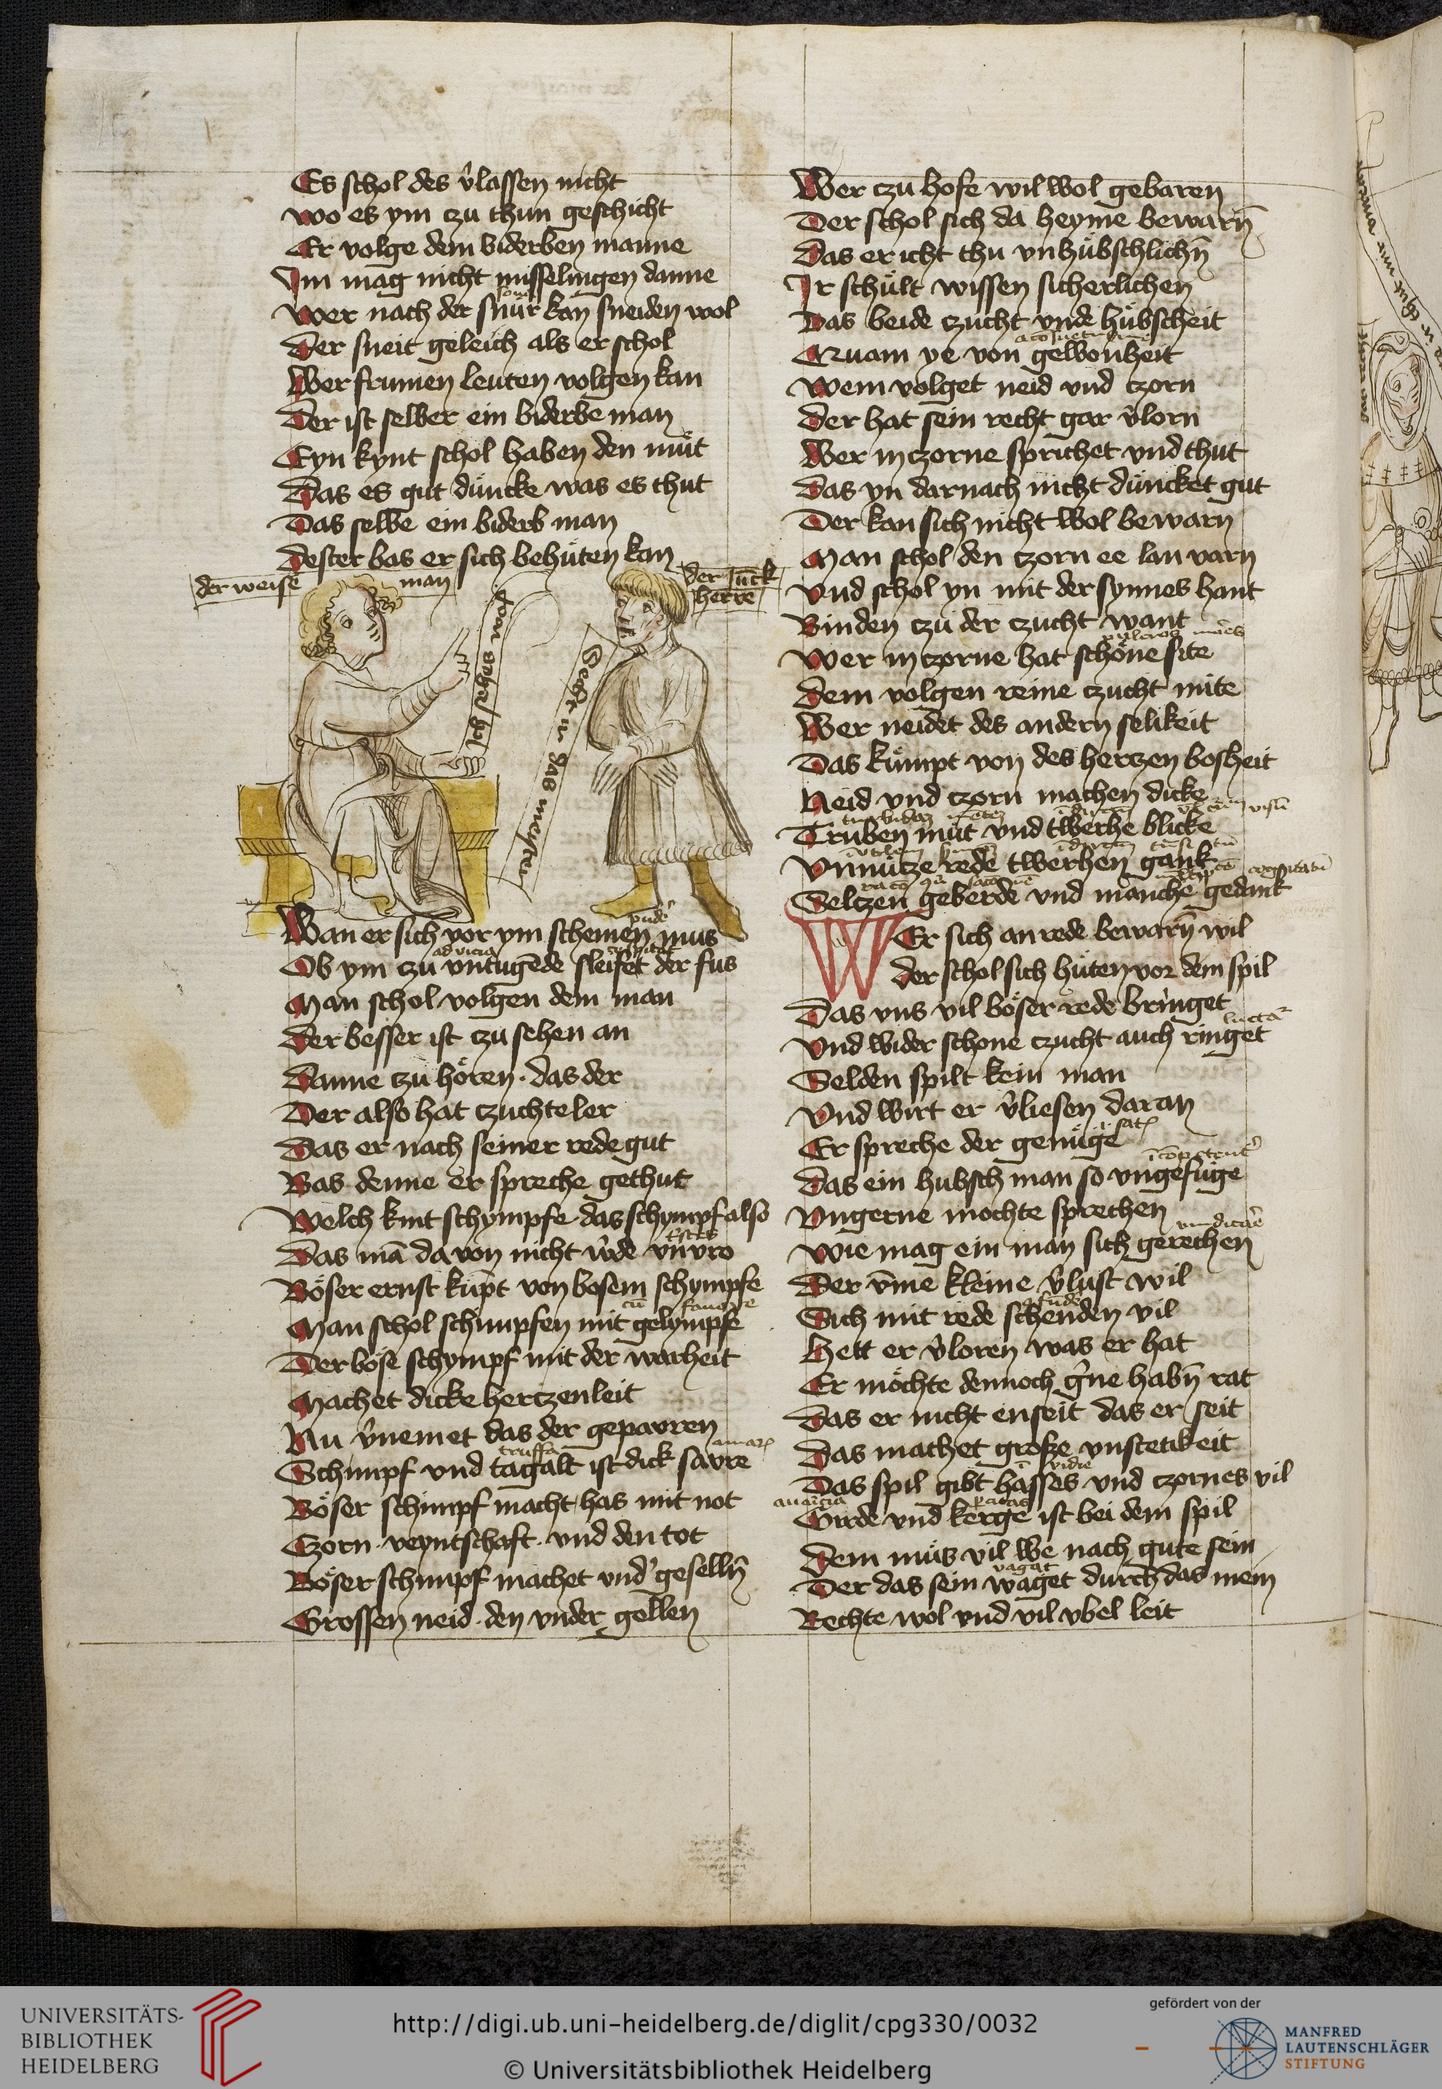 Es schol des v̓lassen nicht
wo es ym czu thun geschicht
Er volge dem biderben manne
Im mag nicht misselingen danne
Wer nach der snur kan sneiden wol
Der sneit geleich als er schol
Wer frumen leuten volgen kan
Der ist selber ein biderbe man
Eyn kynt schol haben den mut
Das es gut duncke was es thut
Das selbe ein biderb man
Dester bas er sich behuten kan
der weise man
der iunck herre
Seht ir das meyster
Wan er sich vor ym schemen mus
Ob ym czu vntugēde sleifet der fus
Man schol volgen dem man
Der besser ist czu sehen an
Danne czu hören · das der
Der also hat czuchte ler
Das er nach seiner rede gut
Bas denne er spreche gethut
Welch kint schympfe das schympf also
Das mā da von nicht w̓de vnvro
Böser ernst kūpt von bosem schympfe
Man schol schimpfen mit gelympfe
Der böse schympf mit der warheit
Machet dicke hertzenleit
Nu v̓nemet das der gepawren
Schimpf vnd tagalt ist dick sawre
Böser schimpf macht has mit not
Czorn · veyntschaft · vnd den tot
Böser schimpf machet vnd̓ geselln̄
Grossen neid · den vnder gellen
Wer czu hofe wil wol gebaren
Der schol sich da heyme bewarn̄
Das er icht thu vnhubschlichn̄
Ir schult wissen sicherlichen
Das beide czucht vnde hubscheit
Quam ye von gewonheit
Wem volget neid vnd czorn
Der hat sein recht gar v̓lorn
Wer in czorne sprichet vnd thut
Das yn darnach nicht duncket gut
Der kan sich nicht wol bewarn
Man schol den czorn ee lan varn
Vnd schol yn mit der synnes hant
Binden czu der czucht want
Wer in czorne hat schöne site
Dem volgen reine czucht mite
Wer neidet des andern selikeit
Das kumpt von des hertzen bosheit
Neid vnd czorn machen dicke
Truben mut vnd twerhe blicke
Vnnutze rede twerhen gank
Seltzen geberde vnd manche gedank
Wer sich an rede bewarn̄ wil
der schol sich huten vor dem spil
Das vns vil böser rede bringet
Vnd wider schone czucht auch ringet
Selden spilt kein man
Vnd wirt er v̓liesen daran
Er spreche der genuge
Das ein hubsch man so vngefuge
Vngerne mochte sprechen
Wie mag ein man sich gerechen
Der v̄me kleine v̓lust wil
Sich mit rede schenden vil
Hett er v̓loren was er hat
Er möchte dennoch g̓ne habn̄ rat
Das er nicht enseit das er seit
Das machet große vnstetikeit
Das spil gibt hasses vnd czornes vil
Girde vnd kerge ist bei dem spil
Dem mus vil we nach gute sein
Der das sein waget durch das mein
Rechte wol vnd vil vbel leit
UNIVERSITÄTS-
BIBLIOTHEK
HEIDELBERG
http://digi.ub.uni-heidelberg.de/diglit/cpg330/0032
© Universitätsbibliothek Heidelberg
gefördert von der
MANFRED
LAUTENSCHLÄGER
STIFTUNG